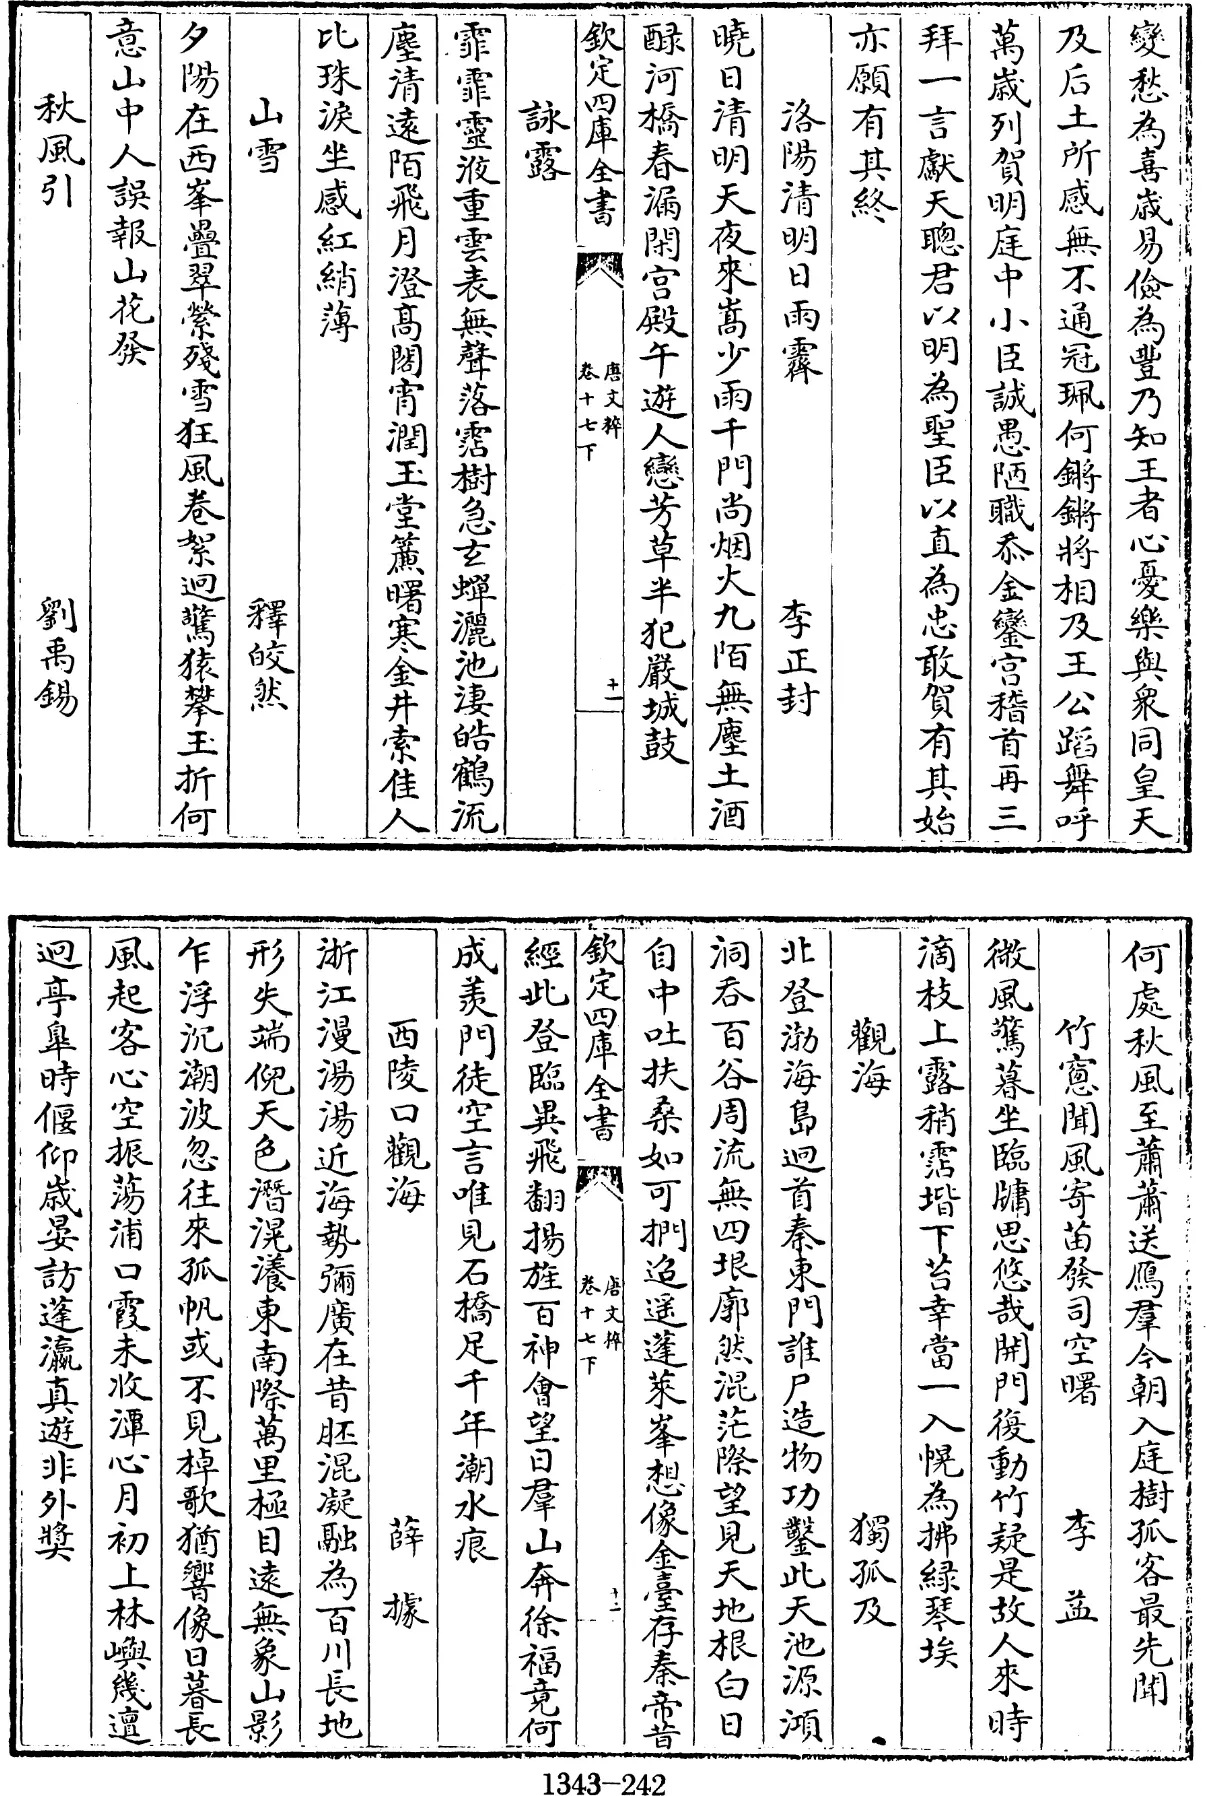 變愁為喜歲易儉為豐乃知王者心憂樂與衆同皇天
及后土所感無不通冠珮何鏘鏘將相及王公蹈舞呼
萬歲列賀明庭中小臣誠愚陋職忝金鑾宮稽首再三
拜一言獻天聰君以明為聖臣以直為忠敢賀有其始
亦願有其終
洛陽清明日雨霽 李正封
曉日清明天夜來嵩少雨千門尚烟火九陌無塵土酒
醁河橋春漏閑宮殿午遊人戀芳草半犯嚴城鼓
欽定四庫全書
唐文粹
卷十七下
十一
詠露
霏霏靈液重雲表無聲落霑樹急玄蟬灑池淒皓鶴流
塵清遠陌飛月澄高閣宵潤玉堂簾曙寒金井索佳人
比珠淚坐感紅綃薄
山雪 釋皎然
夕陽在西峯疊翠縈殘雪狂風卷絮迴驚猿攀玉折何
意山中人誤報山花發
秋風引 劉禹錫
何處秋風至蕭蕭送鴈羣今朝入庭樹孤客最先聞
竹窻聞風寄苗發司空曙 李益
微風驚暮坐臨牗思悠哉開門復動竹疑是故人來時
滴枝上露稍霑堦下苔幸當一入幌為拂緑琴埃
觀海 獨孤及
北登渤海島迴首秦東門誰尸造物功鑿此天池源澒
洞吞百谷周流無四垠廓然混茫際望見天地根白日
自中吐扶桑如可捫迢遥蓬萊峯想像金臺存秦帝昔
欽定四庫全書
唐文粹
卷十七下
十二
經此登臨異飛翻揚旌百神會望日羣山奔徐福竟何
成羨門徒空言唯見石橋足千年潮水痕
西陵口觀海 薛據
浙江漫湯湯近海勢彌廣在昔胚混凝融為百川長地
形失端倪天色潛滉瀁東南際萬里極目遠無象山影
乍浮沉潮波忽往來孤帆或不見棹歌猶響像日暮長
風起客心空振蕩浦口霞未收潭心月初上林嶼幾邅
迴亭臯時偃仰歲晏訪蓬瀛真遊非外獎
1343-242